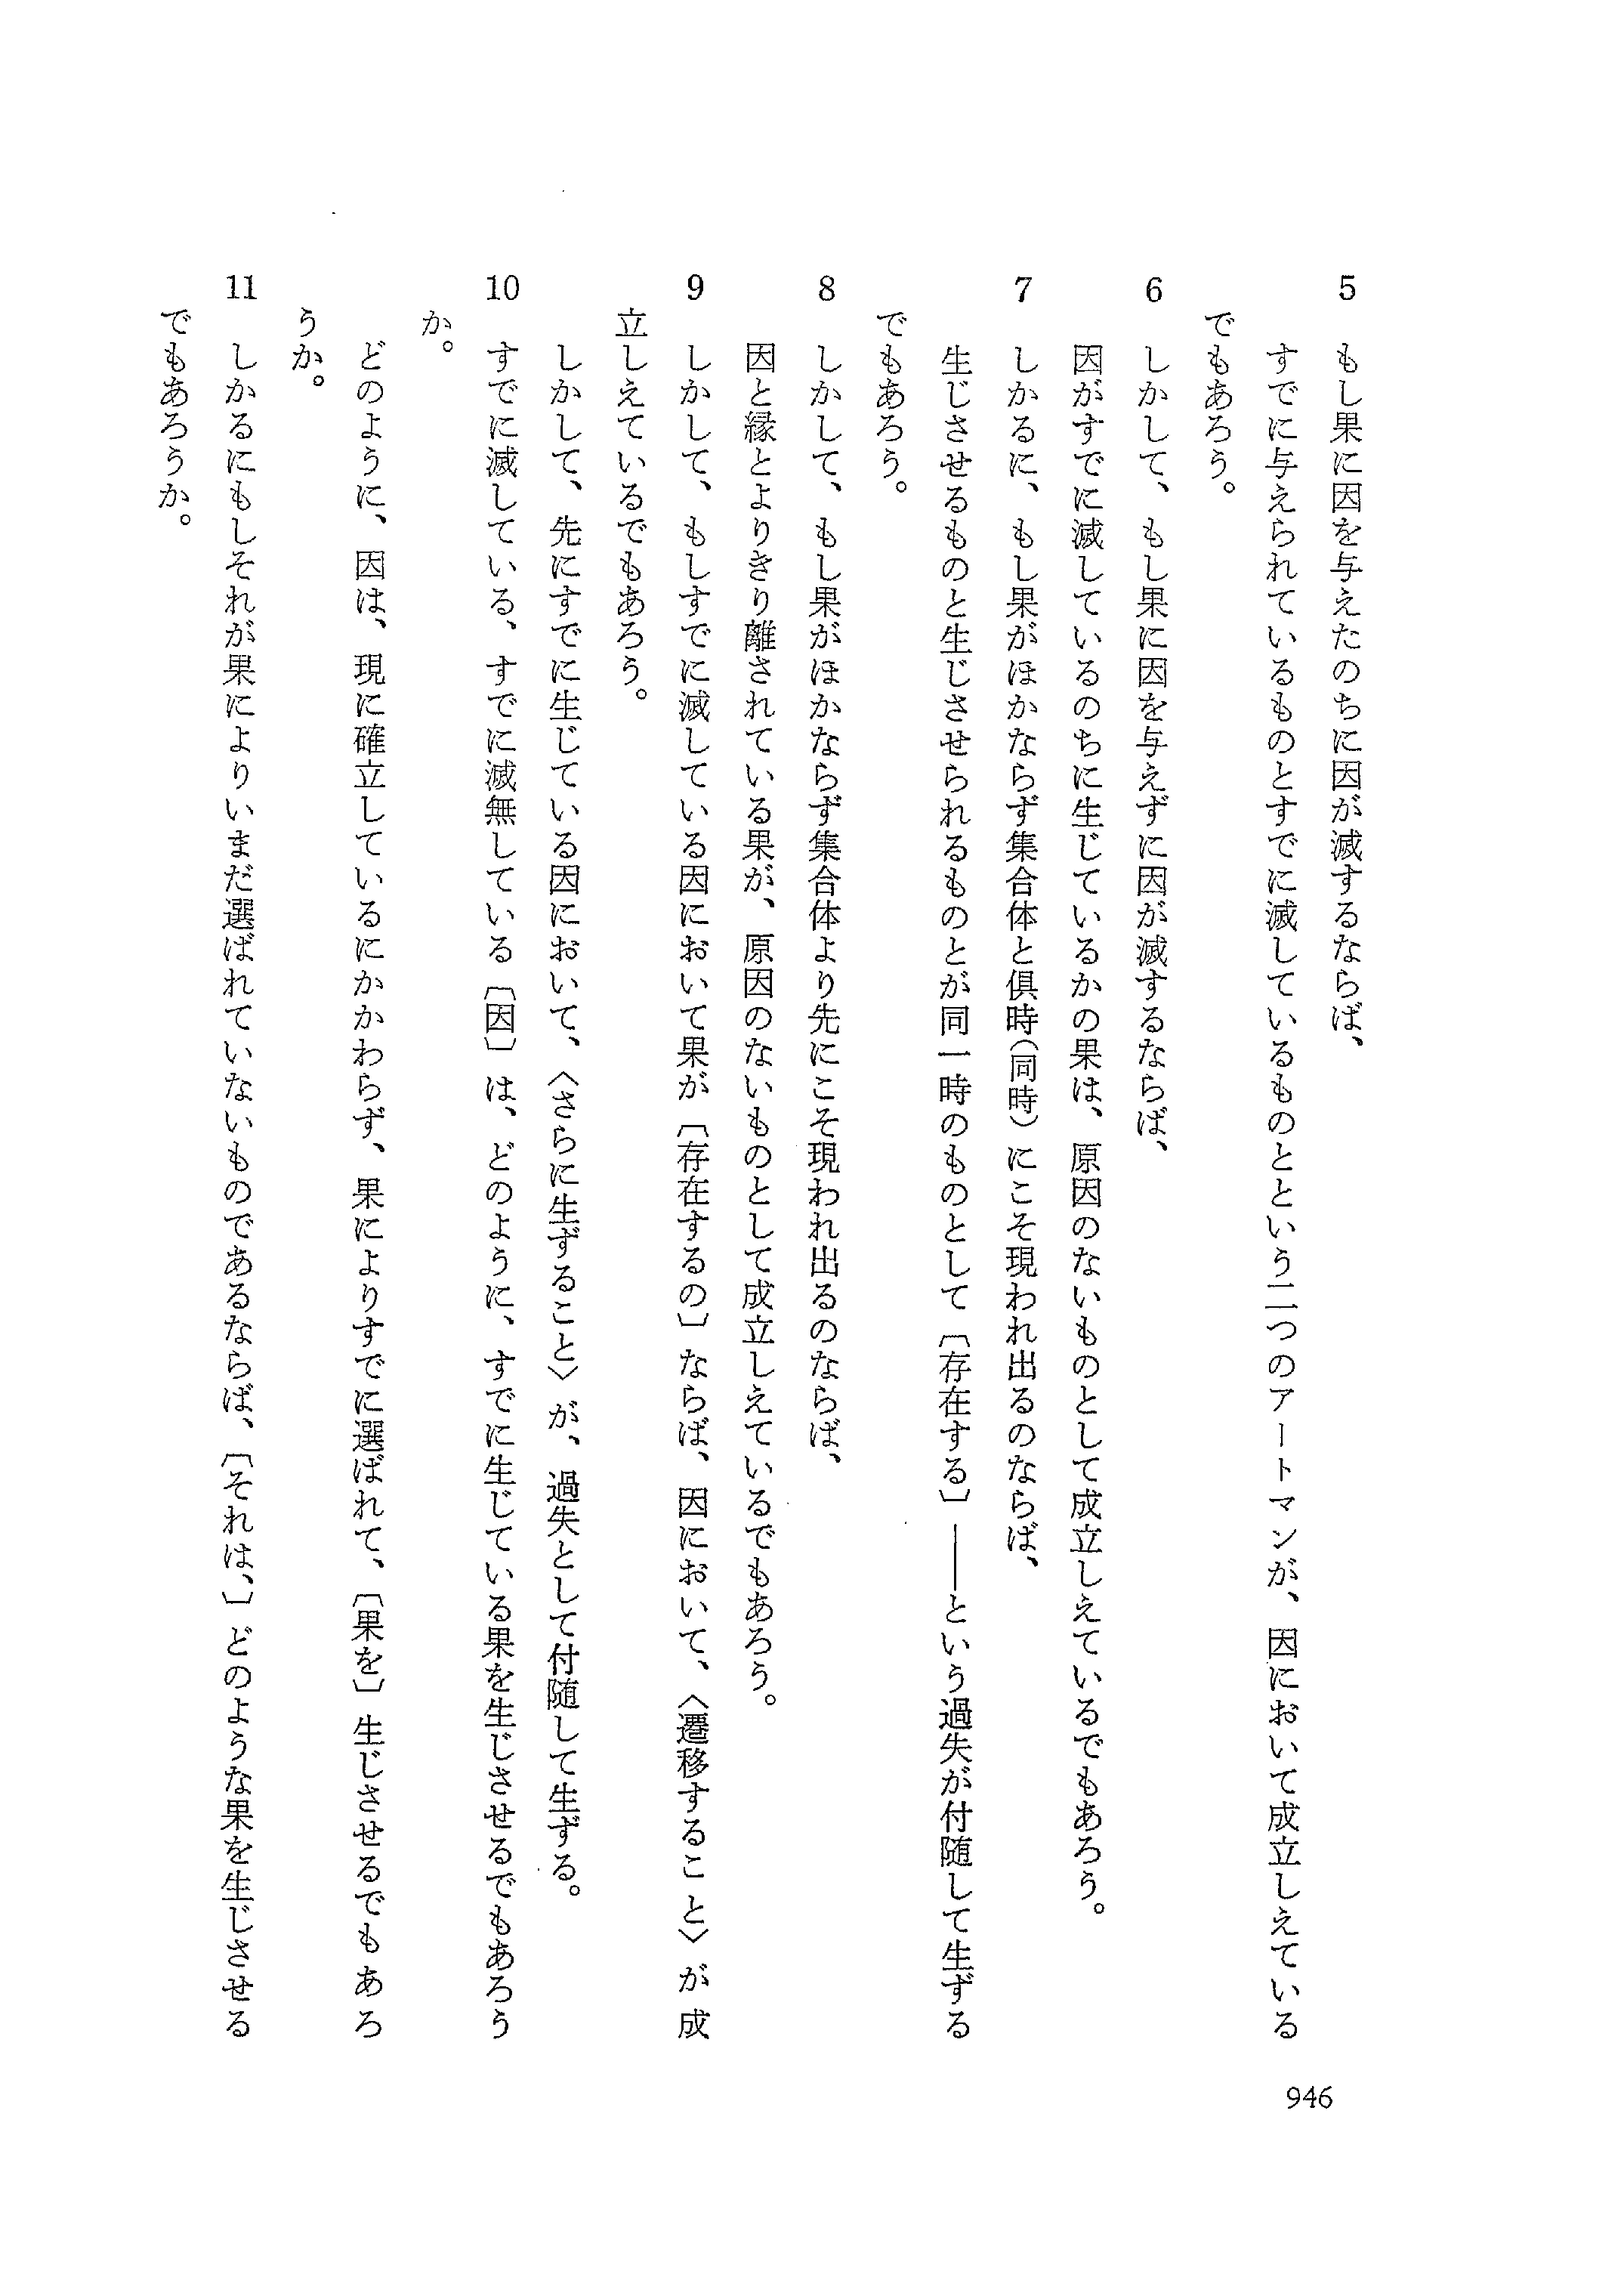 5　もし果に因を与えたのちに因が滅するならば、
すでに与えられているものとすでに滅しているものとという二つのアートマンが、因において成立しえている
でもあろう。
6　しかして、もし果に因を与えずに因が滅するならば、
因がすでに滅しているのちに生じているかの果は、原因のないものとして成立しえているでもあろう。
7　しかるに、もし果がほかならず集合体と俱時（同時）にこそ現われ出るのならば、
生じさせるものと生じさせられるものとが同一時のものとして〔存在する〕――という過失が付随して生ずる
でもあろう。
8　しかして、もし果がほかならず集合体より先にこそ現われ出るのならば、
因と縁とよりきり離されている果が、原因のないものとして成立しえているでもあろう。
9　しかして、もしすでに滅している因において果が〔存在するの〕ならば、因において、〈遷移すること〉が成
立しえているでもあろう。
しかして、先にすでに生じている因において、〈さらに生ずること〉が、過失として付随して生ずる。
10　すでに滅している、すでに滅無している〔因〕は、どのように、すでに生じている果を生じさせるでもあろう
か。
どのように、因は、現に確立しているにかかわらず、果によりすでに選ばれて、〔果を〕生じさせるでもあろ
うか。
11　しかるにもしそれが果によりいまだ選ばれていないものであるならば、〔それは、〕どのような果を生じさせる
でもあろうか。
946